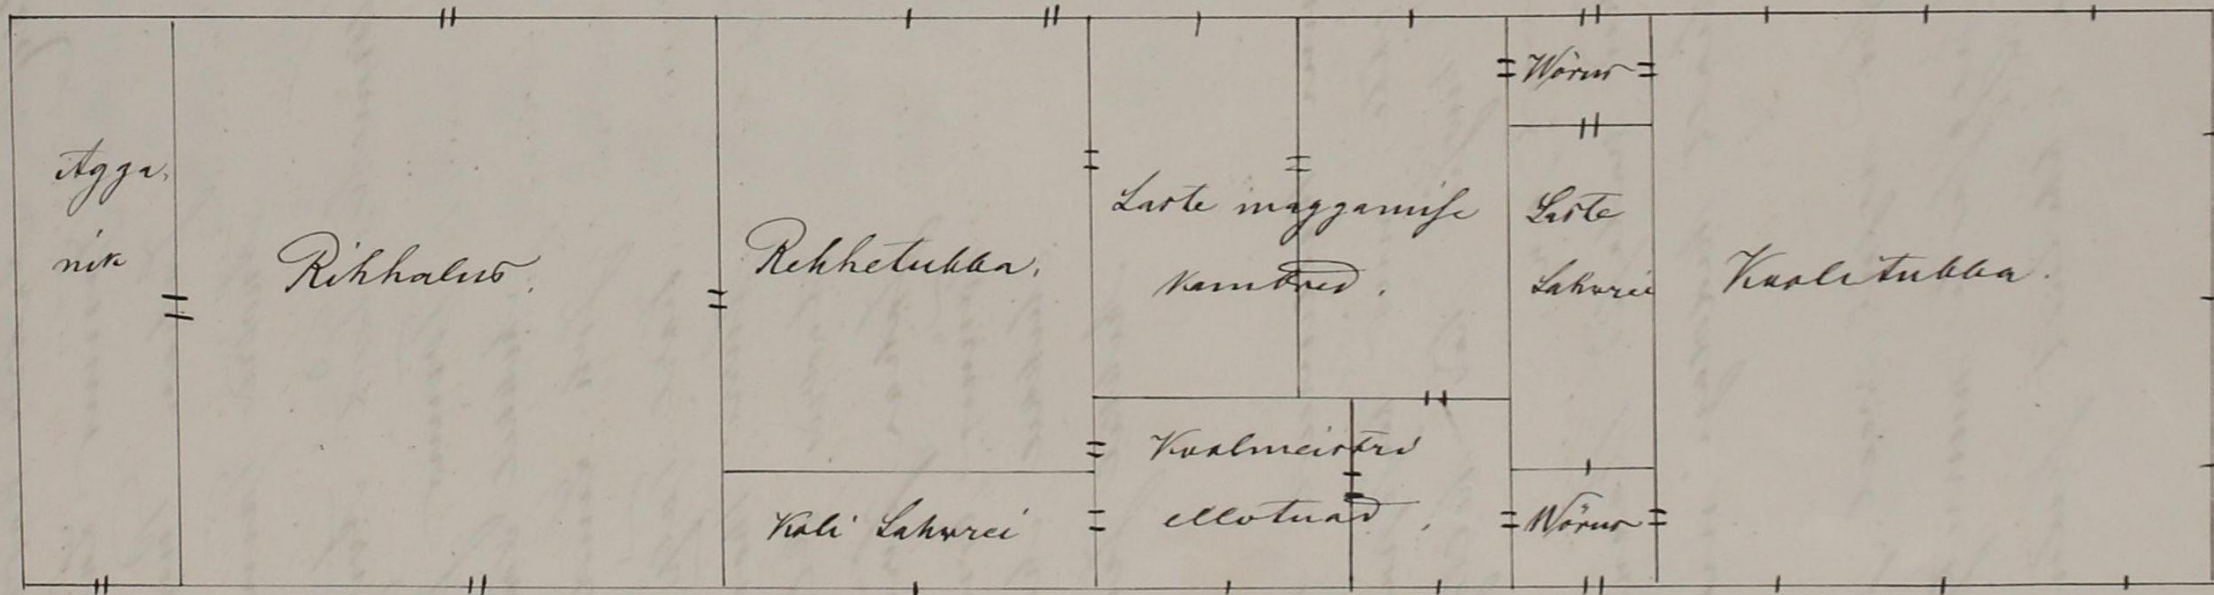 Agga,
nik
Rihhalus.
Rehhetubba.
Koli Sahwrei
Laste maggamise
kambred.
Koolmeistri
ellotuad.
Wörus
Laste
Sahwrei
Wörus
Koolitubba.